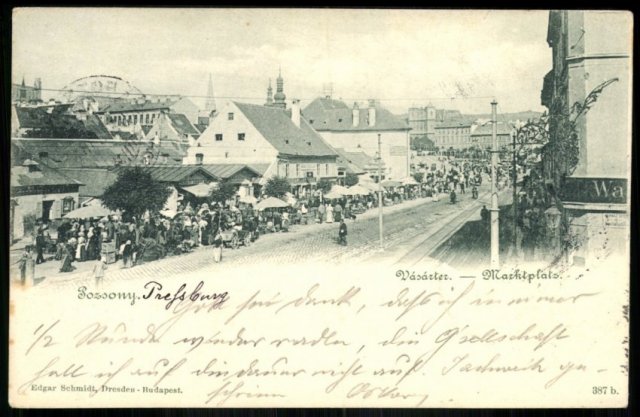 Wa
Vásártér. — Marktplatz.
Pozsony. Preſsburg
Gott sei dank, daſs ich in einer
1/2 Stunde wieder radle, die Gesellschaft
halt ich auf die dauer nicht aus.
Edgar Schmidt, Dresden - Budapest.
387 b.